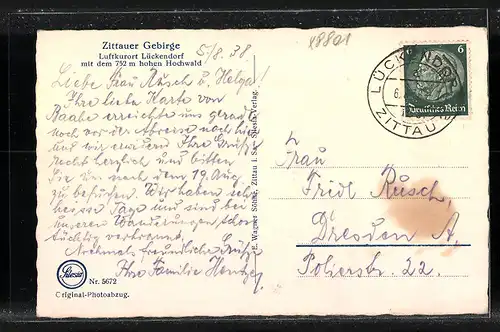 Zittauer Gebirge
Luftkurort Lückendorf
mit dem 792 m hohen Hochwald
5/8. 38.
x8801
Liebe Frau Rusch u. Helga!
Ihre liebe Karte von
erreichte uns gerade
noch vor der Abreise nach hier
und wir erwidern Ihre Grüße
recht herzlich und bitten
Sie uns nach dem 19. Aug.
zu besuchen. Wir haben sehr
heisse Tage und sind bei
unseren Wanderungen schon
tüchtig verbrannt.
Nochmals freundliche Grüße
Ihre Familie
Nr. 5672
Original-Photoabzug.
E. Wagner Söhne, Zittau i. Sa.
LÜCKENDORF
ZITTAU
6
Deutsches Reich
Frau
Fridl Rusch,
Dresden A,
Polierstr. 22.